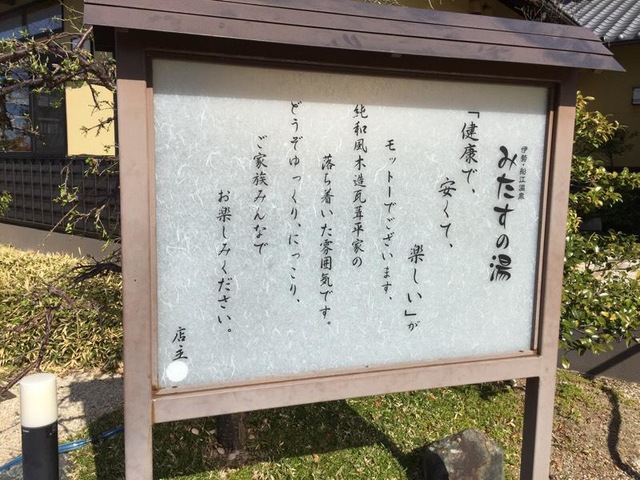 伊勢・船江温泉
みたすの湯
「健康で、
安くて、
楽しい」が
モットーでございます。
純和風木造瓦葺平家の
落ち着いた雰囲気です。
どうぞゆっくり、にっこり、
ご家族みんなで
お楽しみください。
店主